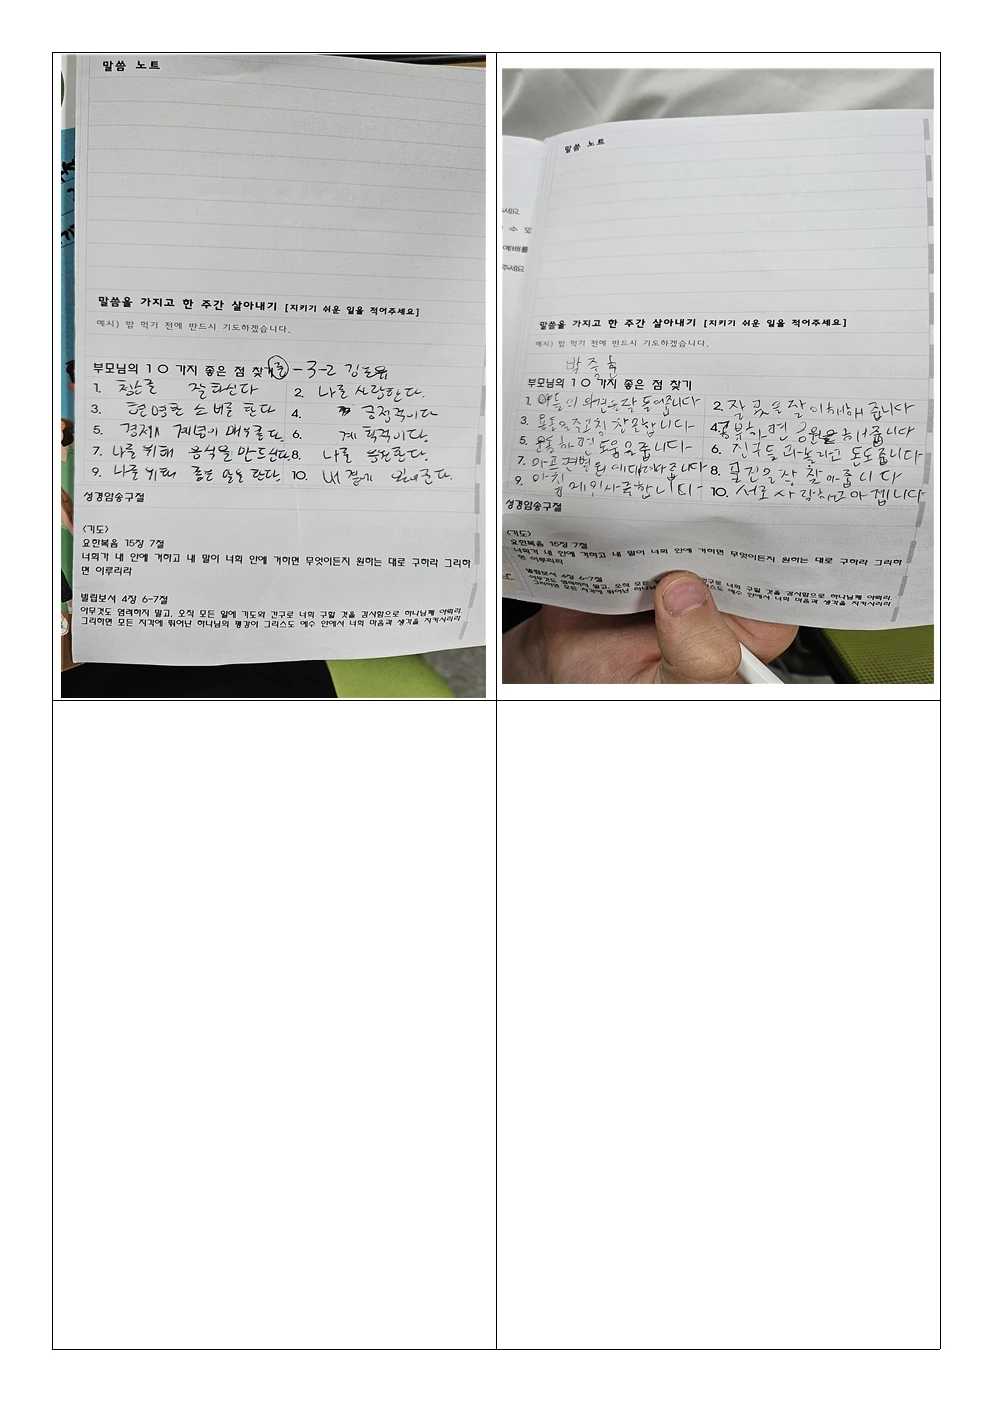 말씀 노트
말씀을 가지고 한 주간 살아내기 [지키기 쉬운 일을 적어주세요]
예시) 밥 먹기 전에 반드시 기도하겠습니다.
부모님의 10 가지 좋은 점 찾기 - 3-2
1. 칭찬을 잘 하신다
2. 나를 사랑한다.
3. 현명한 소비를 한다
4. 긍정적이다
5. 경제 개념이 매우 좋다.
6. 계획적이다.
7. 나를 위해 음식을 만드신다.
8. 나를 응원한다.
9. 나를 위해 좋은 말을 한다.
10. 내 곁에
성경암송구절
<기도>
요한복음 15장 7절
너희가 내 안에 거하고 내 말이 너희 안에 거하면 무엇이든지 원하는 대로 구하라 그리하
면 이루리라
빌립보서 4장 6-7절
아무것도 염려하지 말고, 오직 모든 일에 기도와 간구로 너희 구할 것을 감사함으로 하나님께 아뢰라.
그리하면 모든 지각에 뛰어난 하나님의 평강이 그리스도 예수 안에서 너희 마음과 생각을 지키시리라
말씀 노트
주세요.
수 있
예배를
주세요
말씀을 가지고 한 주간 살아내기 [지키기 쉬운 일을 적어주세요]
예시) 밥 먹기 전에 반드시 기도하겠습니다.
박주훈
부모님의 10 가지 좋은 점 찾기
1. 아들의 의견을 잘 들어줍니다
2. 잘못을 잘 이해해 줍니다
3. 용돈을 주고 칭찬합니다
4. 공부하면 응원을 해줍니다
5. 운동하면 도움을 줍니다
6. 친구들과 놀라고 돈도 줍니다
7. 아프면 병원에 데려다 줍니다
8. 물건을 잘 찾아 줍니다
9. 아침
합니다
10. 서로 사랑하고 아껩니다
성경암송구절
<기도>
요한복음 15장 7절
너희가 내 안에 거하고 내 말이 너희 안에 거하면 무엇이든지 원하는 대로 구하라 그리하
면 이루리라
빌립보서 4장 6-7절
아무것도 염려하지 말고, 오직 모든 간구로 너희 구할 것을 감사함으로 하나님께 아뢰라.
그리하면 모든 지각에 뛰어난 하나님 그리스도 예수 안에서 너희 마음과 생각을 지키시리라